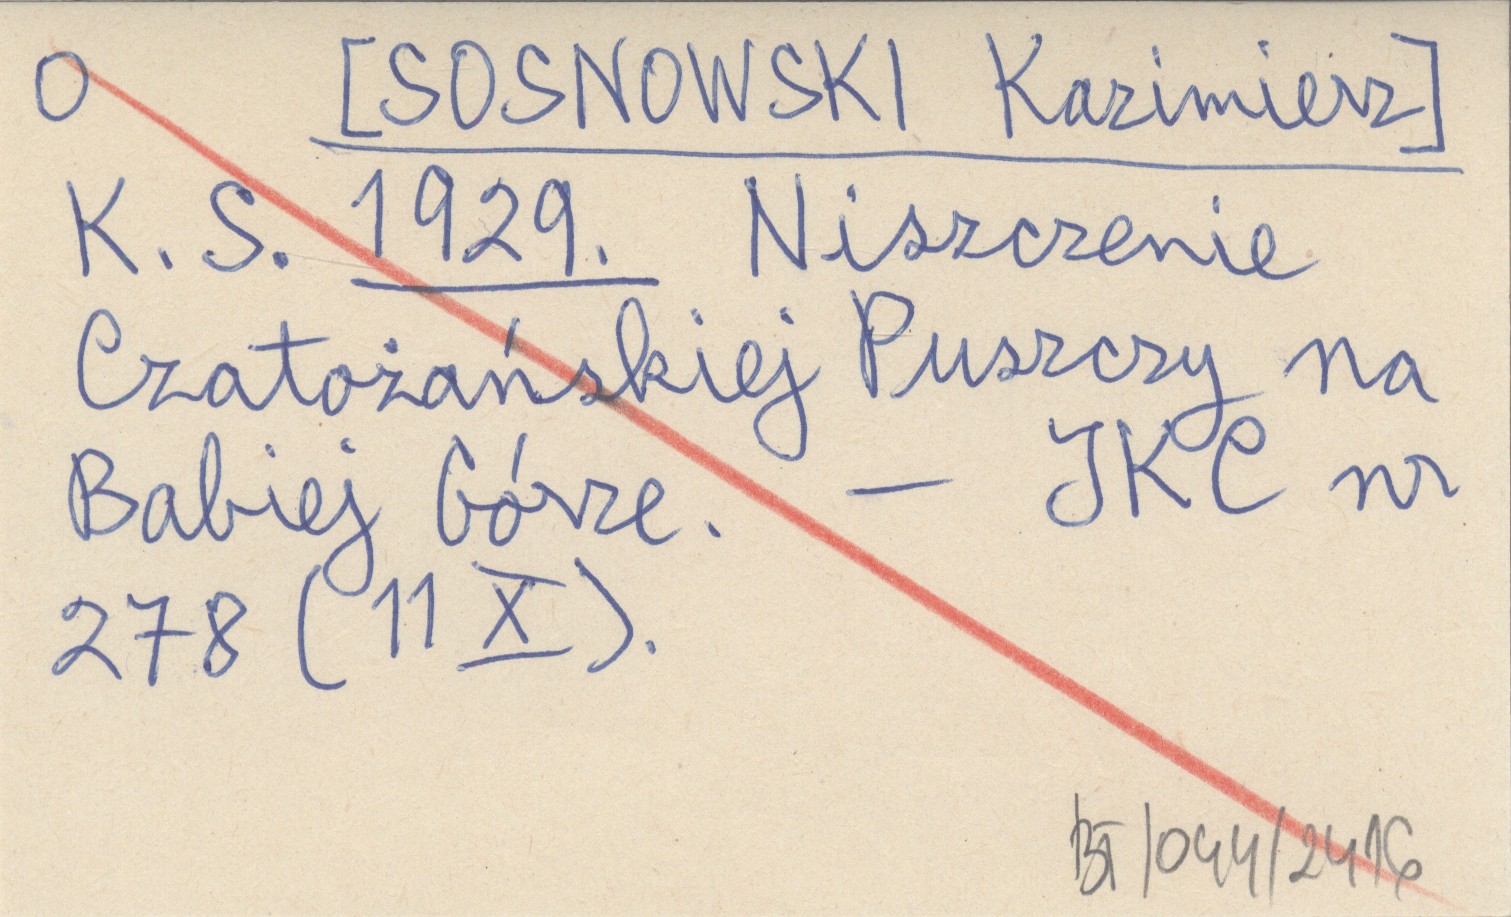 O [SOSNOWSKI Kazimierz]
K. S. 1929. Niszczenie
Czatożańskiej Puszczy na
Babiej Górze. — IKC nr
278 (11 X).
BT/044/2416